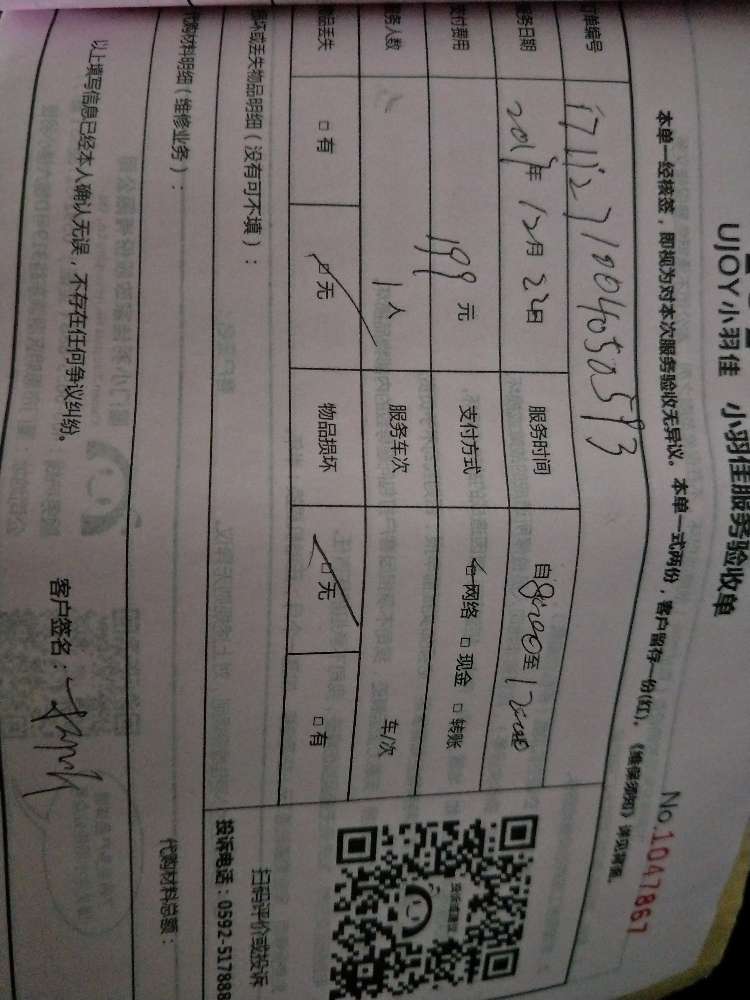 UJOY小羽佳 小羽佳服务验收单
No.1047867
本单一经核签，即视为对本次服务验收无异议。本单一式两份，客户留存一份(红)。《维保须知》详见背面。
订单编号
服务日期 年12月22日 服务时间 自8:00至12:00
支付费用 199元 支付方式 网络 □现金 □转账
服务人数 1人 服务车次 车/次
物品丢失 □有 □无 物品损坏 □无 □有
损坏或丢失物品明细（没有可不填）：
扫码评价或投诉
投诉电话：0592-517888
代购材料明细（维修业务）： 代购材料总额：
以上填写信息已经本人确认无误，不存在任何争议纠纷。 客户签名：